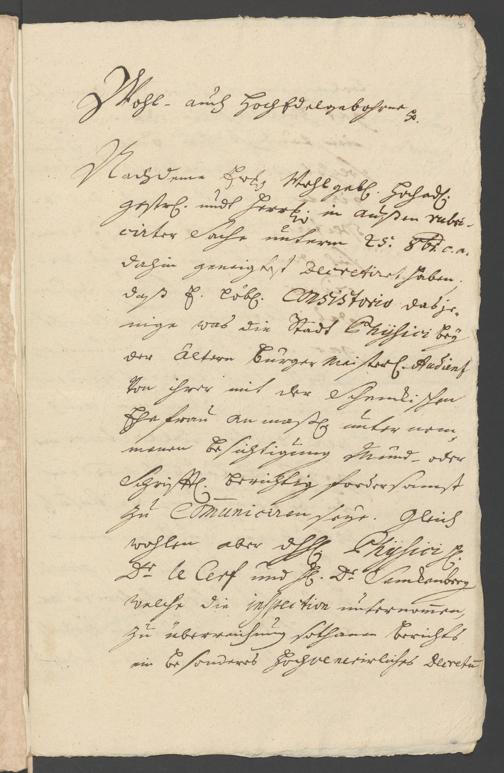 Wohl- auch HochEdelgebohrne p.
Nachdeme Wohlgebl. Hochadl.
gestrl. undt Herrl. in außen rubri-
cirter Sache unterm 25: 8br. c. a.
dahin geneigtest decretiret haben,
daß E. Löbl. Consistorio dasje-
nige was die Stadt Physici bey
der Ältern Bürger Meisterl. Audienz
von ihrer mit der Schenckischen
Ehefrau unternom-
menen Besichtigung Mund- oder
Schrifftl. berichtig fordersamst
zu Communiciren seye. Gleich
wohlen aber Physici H.
Dr. le Cerf und H. Dr. Senckenberg
welche die inspection unternommen,
zu überreichung sothanen Berichts
ein besonderes Hochvenerirliches Decretum